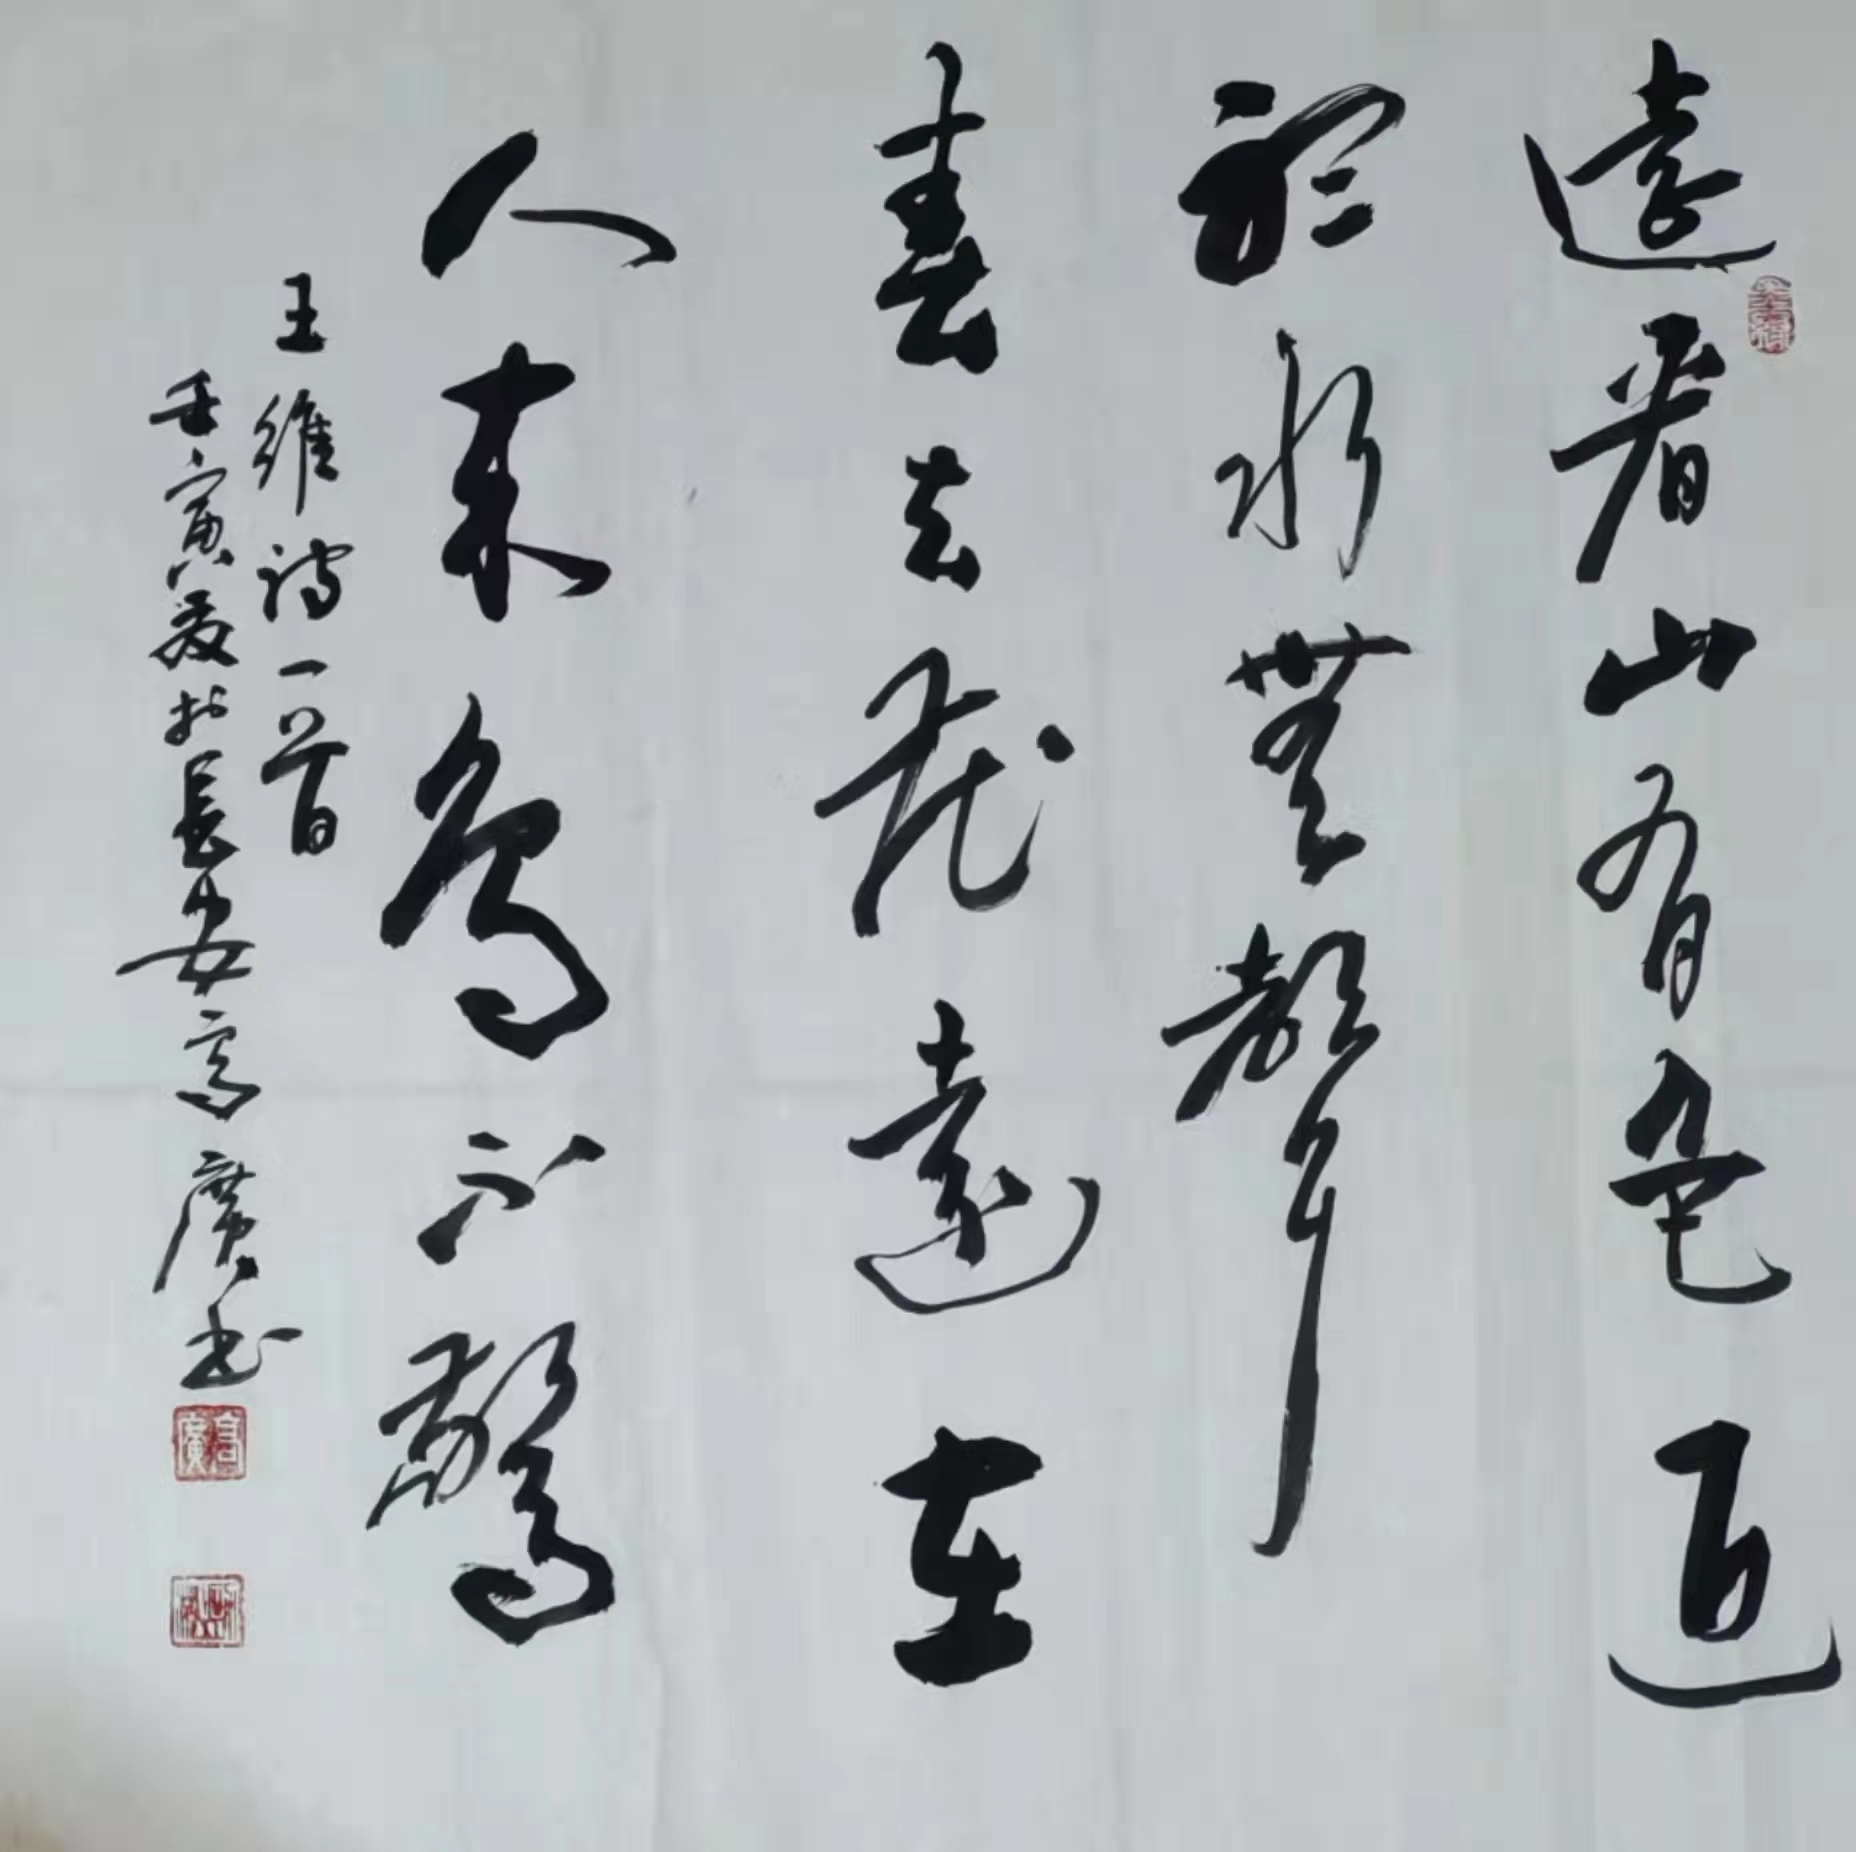 遠看山有色近
聽水無聲
春去花還在
人來鳥不驚
王維詩一首
壬寅夏於長安高廣書
高廣